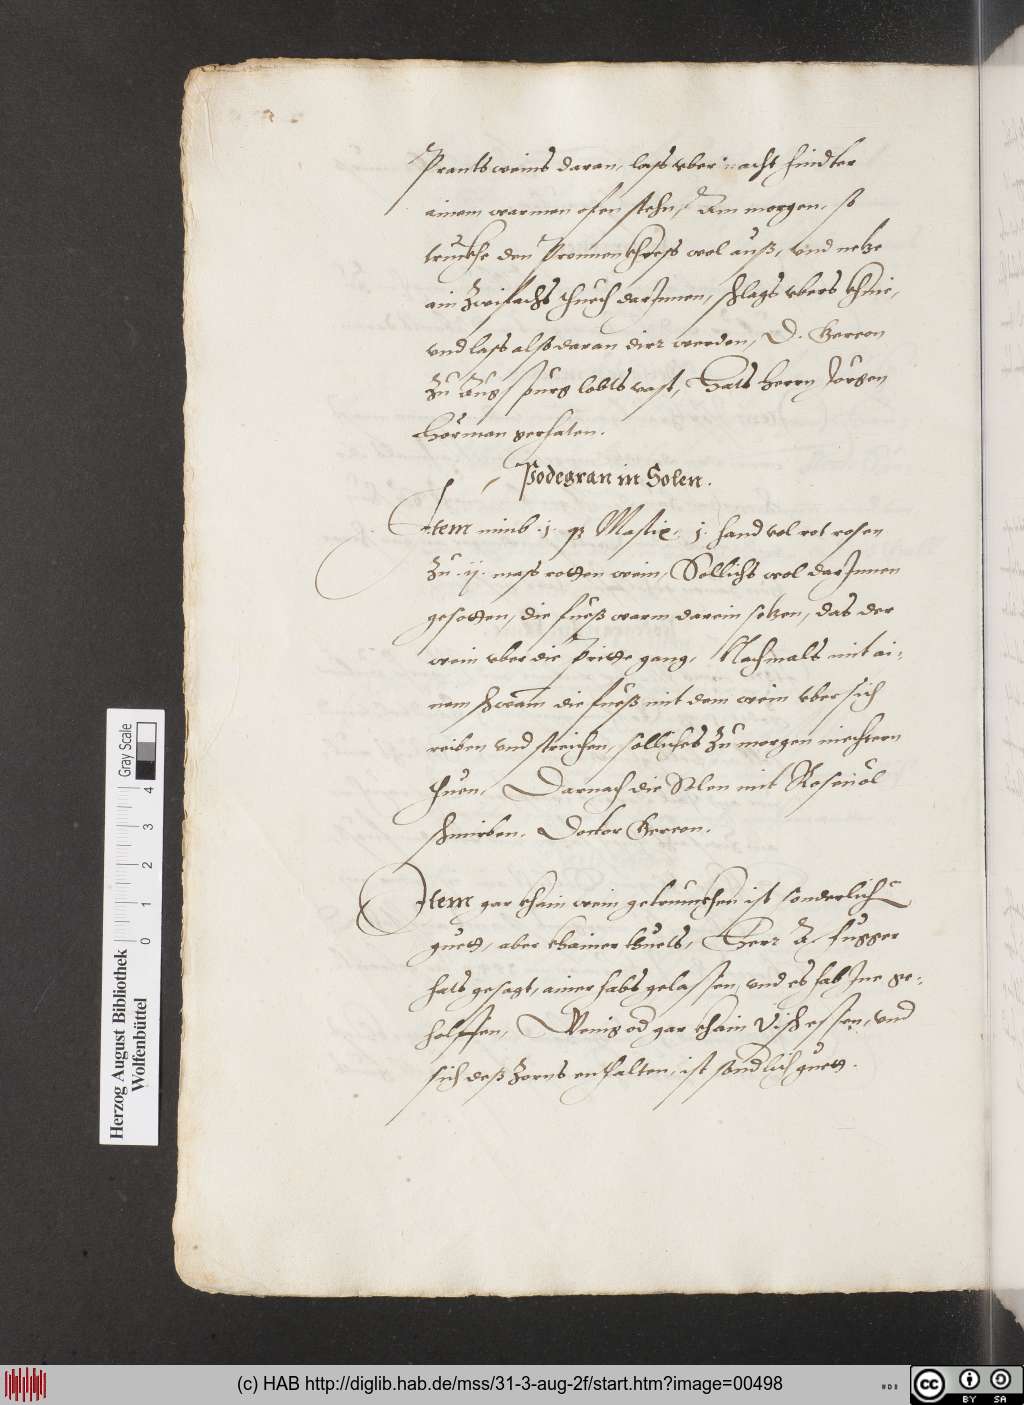 Prantsweins daran, lass uber nacht hindter
ainem warmen ofen stehn, Am morgen, so
truckhe den Pronnenkhress wol auß, und netze
ain Zwifachs thuech darJnnen, schlags ubers khnie,
und lass also daran dirr werden, D. Gereon
Zu Augspurg lobts vast, Hats Herrn Jorgen
Hörman gerhaten.
Podegran in Solen.
Item nimb .j. Mastix, j. hand vol rot rosen
Zu .ij. mass rotten wein, Sollichs wol darJnnen
gesotten, die fueß warm darein setzen, das der
wein uber die Pritte gang, Nachmals mit ai-
nem schwam die fueß mit dem wein uber sich
reiben und streichen, solliches Zu morgen niechtern
thuen, Darnach die Solen mit Rosenöl
schmirben. Doctor Gereon.
Item gar khain wein getrunckhen ist sonderlich
guett, aber khainer thuets, Herr A. fugger
hats gesagt, ainer habs gelassen, und es hab Jne ge-
holffen, Wenig od gar khain visch essen, und
sich deß Zorns enthalten, ist sondlich guett.
Herzog August Bibliothek
Wolfenbüttel
0 1 2 3 4
Gray Scale
(c) HAB http://diglib.hab.de/mss/31-3-aug-2f/start.htm?image=00498
cc BY SA